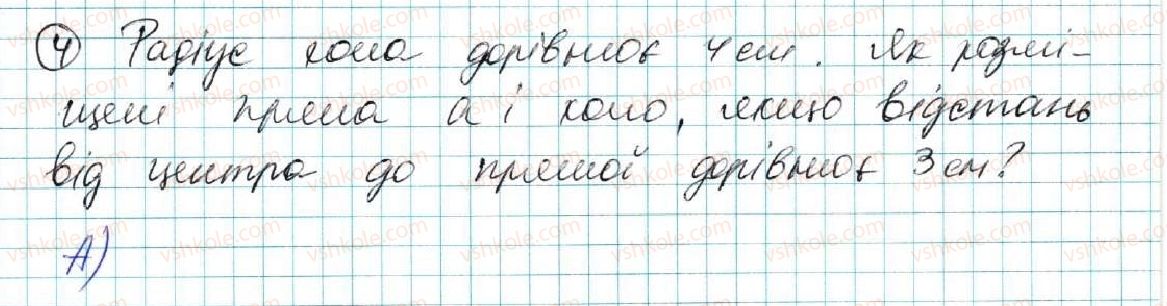 4 Радіус кола дорівнює 4 см. Як розмі-
щені пряма a і коло, якщо відстань
від центра до прямої дорівнює 3 см?
А)